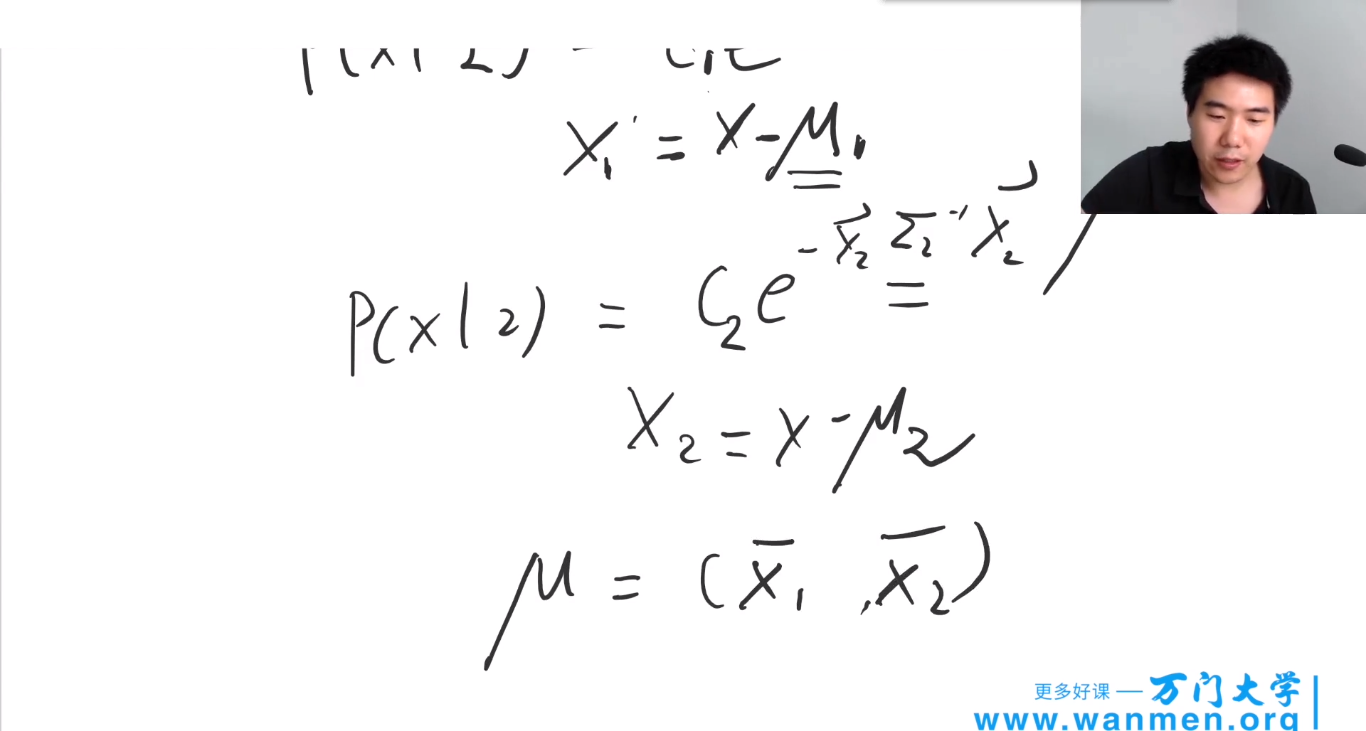 X₁' = X - μ₁
P(X|2) = C₂e^{-X⃗₂ Σ₂⁻¹ X⃗₂}
X₂ = X - μ₂
μ = (X̄₁, X̄₂)
更多好课 — 万门大学
www.wanmen.org